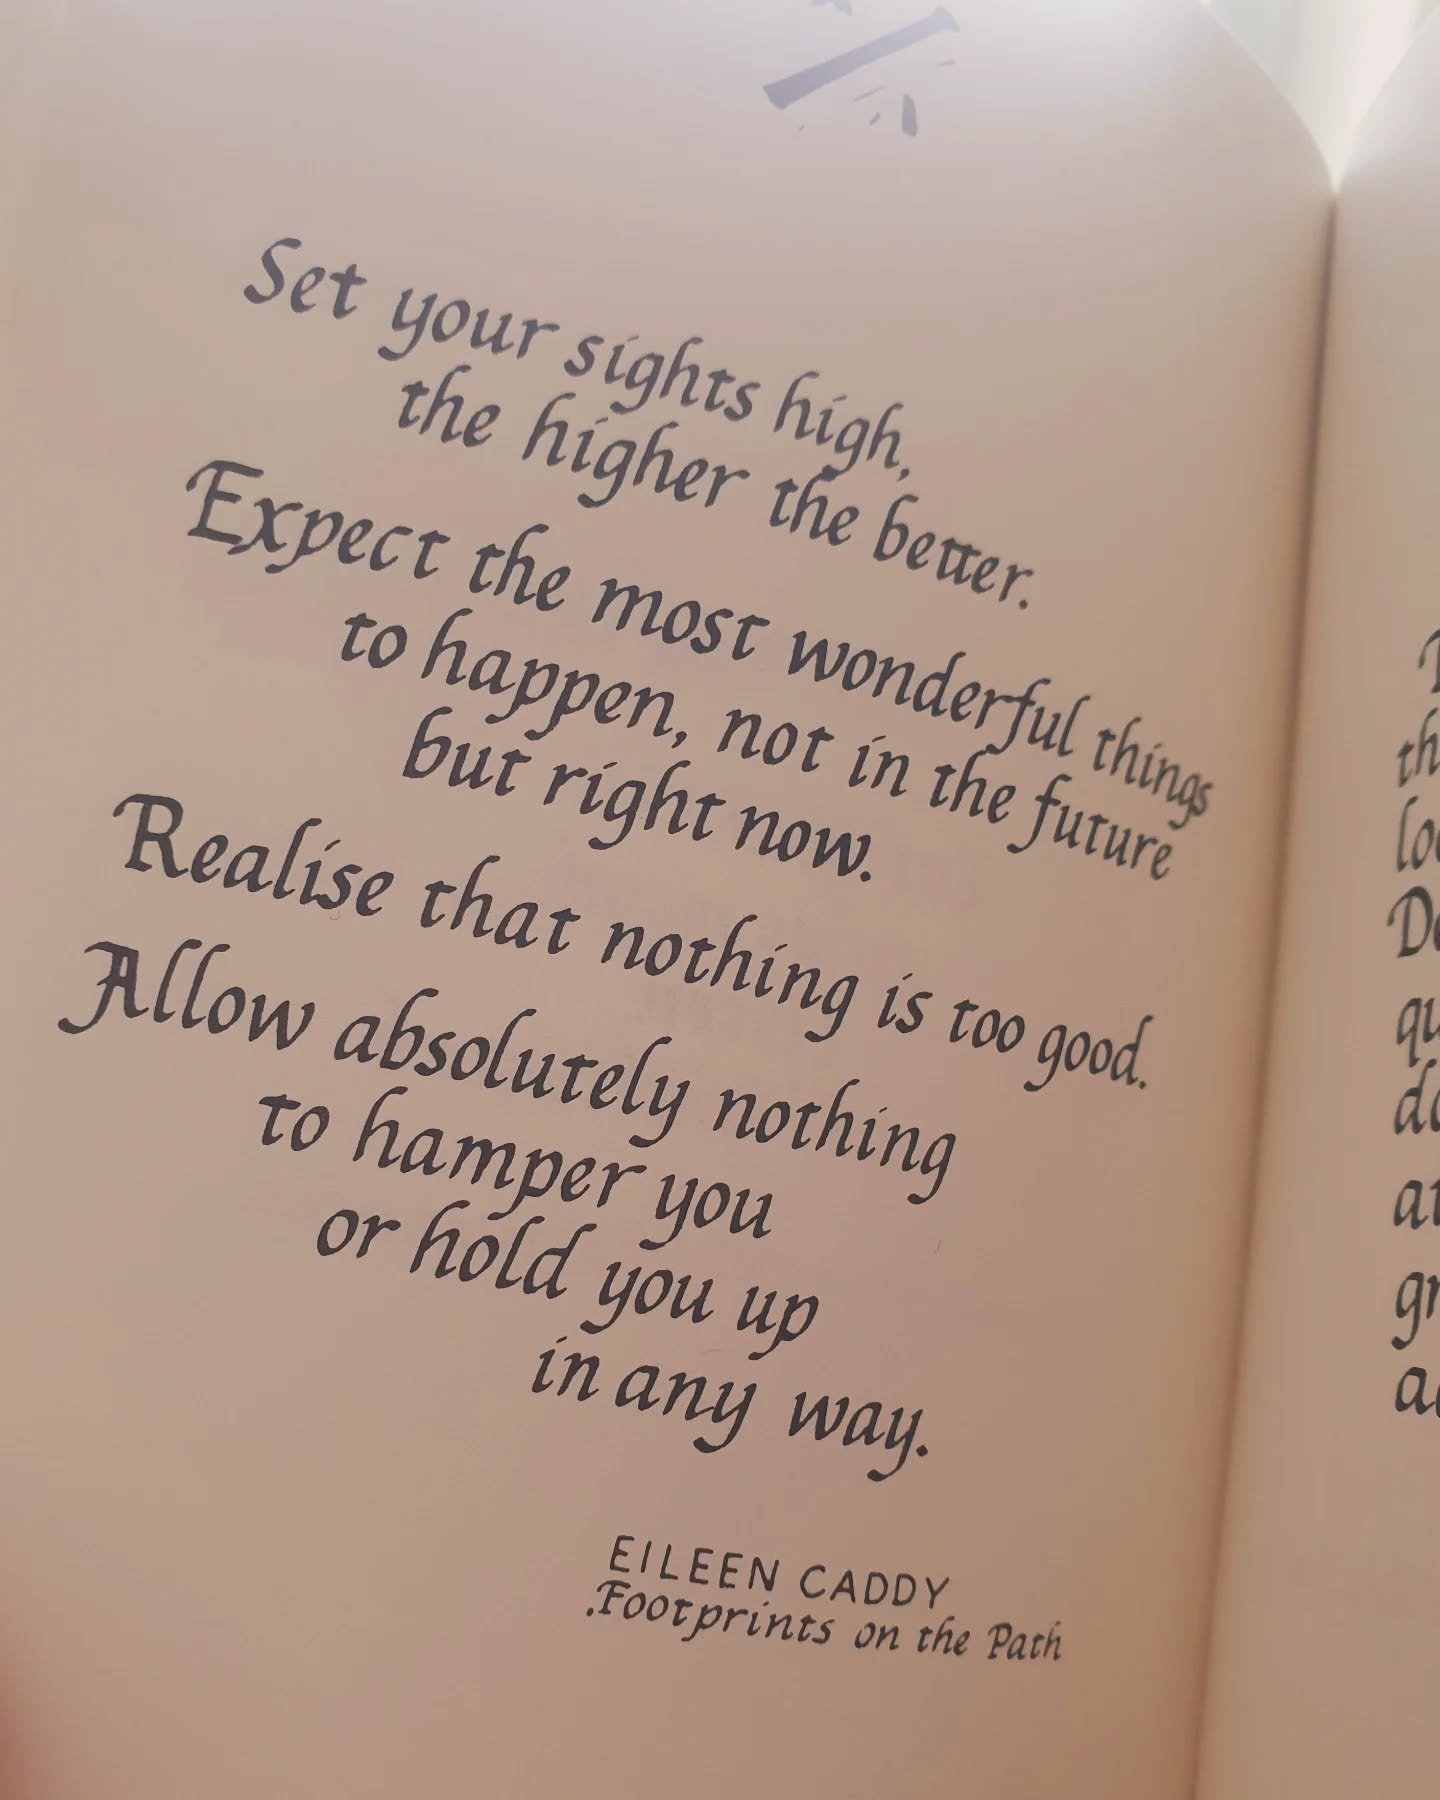 Set your sights high,
the higher the better.
Expect the most wonderful things
to happen, not in the future
but right now.
Realise that nothing is too good.
Allow absolutely nothing
to hamper you
or hold you up
in any way.
EILEEN CADDY
Footprints on the Path